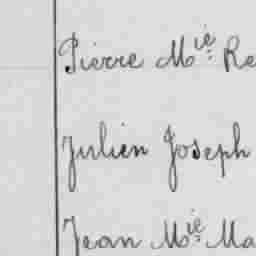 Pierre Mie Re
Julien Joseph
Jean Mie Ma